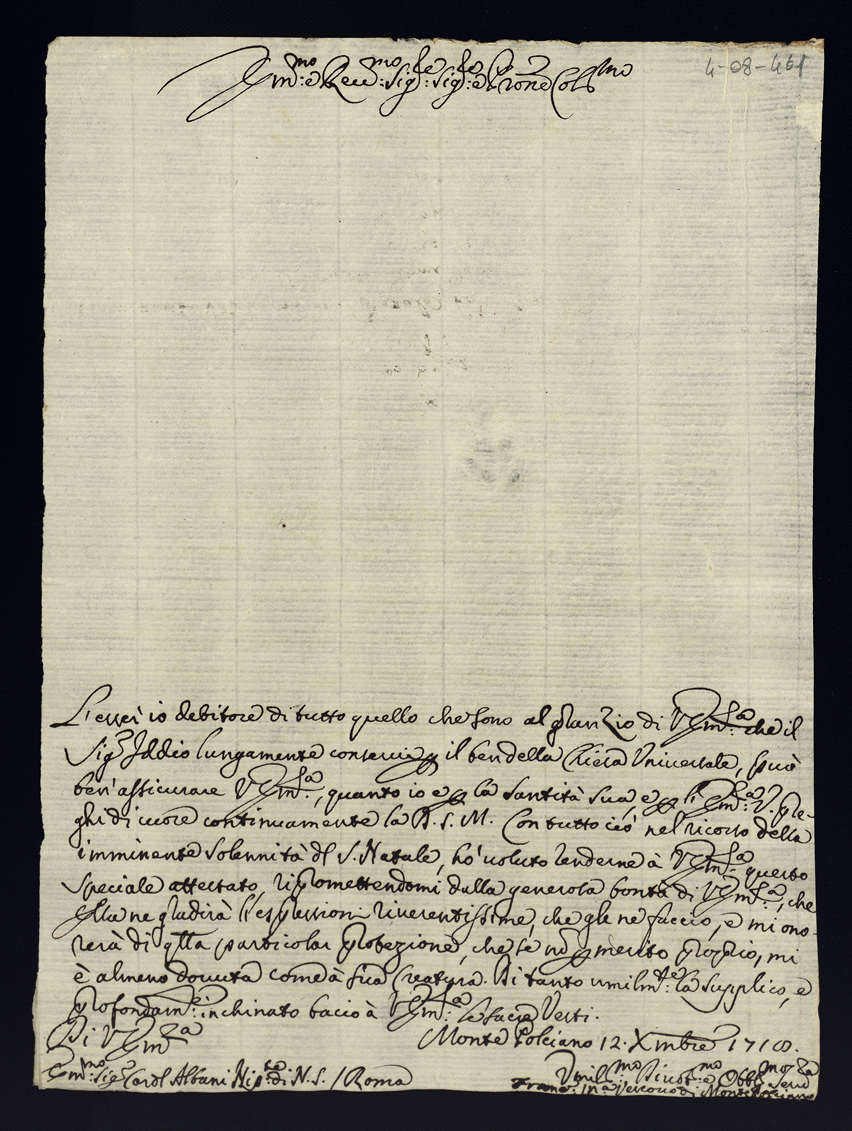 4-08-461
Em:mo e Reu:mo Sig:re Sig:re e Prone Col:mo
L'esser io debitore di tutto quello che sono al gran Zio di V Em:za che il
Sig:e Iddio lungamente conservi p il ben della Chiesa Universale, può
ben'assicurare V Em:za, quanto io e p la Santità Sua, e p l'Em:za V. pre-
ghi di cuore continuamente la D. S. M. Con tutto ciò nel ricorso della
imminente Solennità dl S. Natale, hò voluto renderne à V Em:za questo
speciale attestato, ripromettendomi dalla generosa bontà di V Em:za, che
Ella ne gradirà l'espressioni riverentissime, che gle ne faccio, e mi ono-
rerà di qlla particolar protezione, che se nò p merito proprio, mi
è almeno dovuta come à sua Creatura. Di tanto umilm:te la supplico, e
profondam:te inchinato bacio à V Em:za le sacre Vesti.
Di V Em:za
Monte Polciano 12. Xmbre 1710.
Em:mo Sig:r Cardl Albani Nip:te di N. S. / Roma
Umil:mo Divot:mo e Obbl:mo Serv:
Franc: M:a Vescovo di Monte Polciano